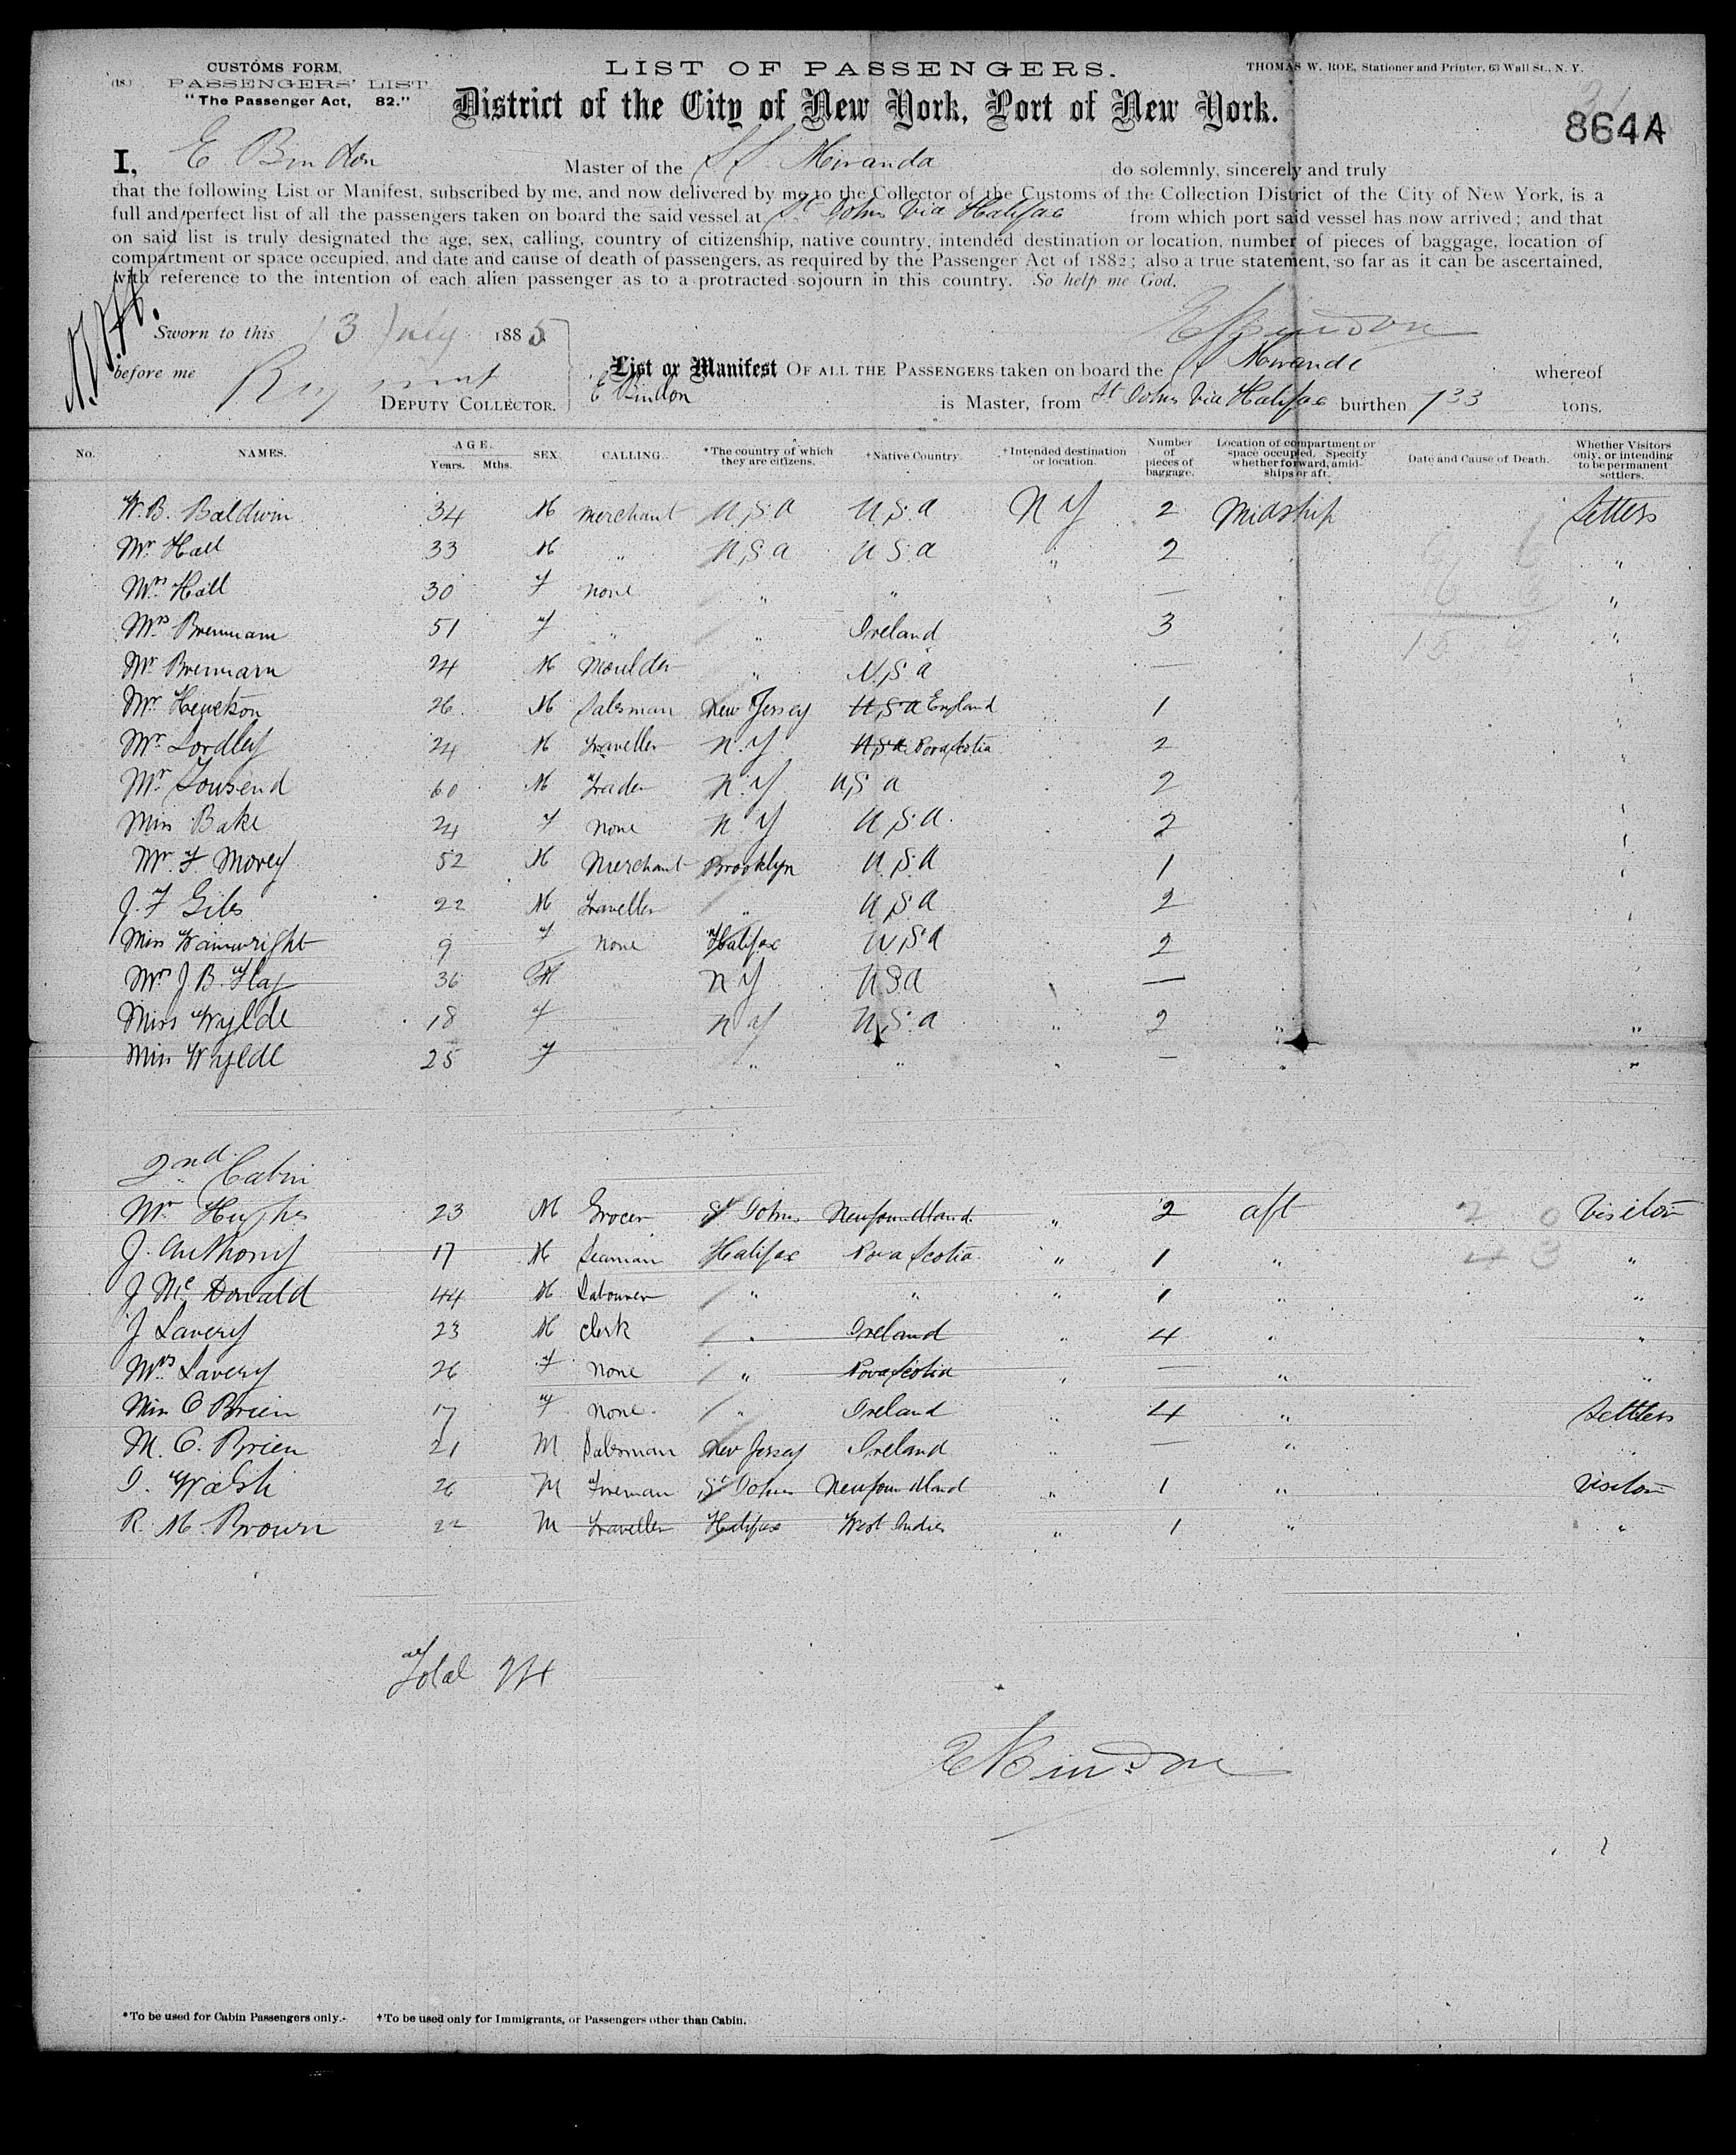 CUSTOMS FORM,
(18.) PASSENGERS' LIST
"The Passenger Act, 82."
LIST OF PASSENGERS.
THOMAS W. ROE, Stationer and Printer, 63 Wall St., N. Y.
District of the City of New York, Port of New York.
864A
I, E Bindon Master of the SS Miranda do solemnly, sincerely and truly
that the following List or Manifest, subscribed by me, and now delivered by me to the Collector of the Customs of the Collection District of the City of New York, is a
full and perfect list of all the passengers taken on board the said vessel at St Johns Via Halifax from which port said vessel has now arrived; and that
on said list is truly designated the age, sex, calling, country of citizenship, native country, intended destination or location, number of pieces of baggage, location of
compartment or space occupied, and date and cause of death of passengers, as required by the Passenger Act of 1882; also a true statement, so far as it can be ascertained,
with reference to the intention of each alien passenger as to a protracted sojourn in this country. So help me God.
Sworn to this 13 July 1885 E Bindon
before me
DEPUTY COLLECTOR.
List or Manifest OF ALL THE PASSENGERS taken on board the SS Miranda whereof
E Bindon is Master, from St Johns Via Halifax burthen 733 tons.
No. NAMES. AGE. Years. Mths. SEX. CALLING. *The country of which they are citizens. †Native Country. †Intended destination or location. Number of pieces of baggage. Location of compartment or space occupied. Specify whether forward, amidships or aft. Date and Cause of Death. Whether Visitors only, or intending to be permanent settlers.
W. B. Baldwin 34 M Merchant U.S.A U.S.A N Y 2 Midship Settlers
Mr Hall 33 M " U.S.A U.S.A " 2 "
Mrs Hall 30 F none " " — "
Mrs Brennam 51 F " " Ireland 3 "
Mr Brennam 24 M Moulder " U.S.A —
Mr Hewetson 26 M Salesman New Jersey U.S.A England 1
Mr Lordley 24 M Traveller N.Y U.S.A Nova Scotia 2
Mr Tousend 60 M Trader N.Y U.S A 2
Miss Bake 24 F none N.Y U.S.A. 2
Mr F Morey 52 M Merchant Brooklyn U.S.A 1
J. F Giles 22 M Traveller " U.S.A 2
Miss Wainwright 9 F none Halifax U.S.A 2
Mrs J B. Flay 36 " N Y U.S.A —
Miss Wylde 18 F " N Y U.S.A " 2 " "
Miss Wylde 25 F " " " — " "
2nd Cabin
Mr Hughes 23 M Grocer St Johns Newfoundland " 2 aft Visitor
J. Anthony 17 M Seaman Halifax Nova Scotia " 1 " "
J Mc Donald 44 M Labourer " " " 1 " "
J Lavery 23 M Clerk " Ireland " 4 " "
Mrs Lavery 26 F none " Nova Scotia " — " "
Miss O Brien 17 F none. " Ireland " 4 " Settlers
M. O. Brien 21 M Salesman New Jersey Ireland " — " "
J. Walsh 26 M Fireman St Johns Newfoundland " 1 " Visitor
R. M. Brown 22 M Traveller Halifax West Indies " 1 " "
Total 24
E Bindon
*To be used for Cabin Passengers only. †To be used only for Immigrants, or Passengers other than Cabin.